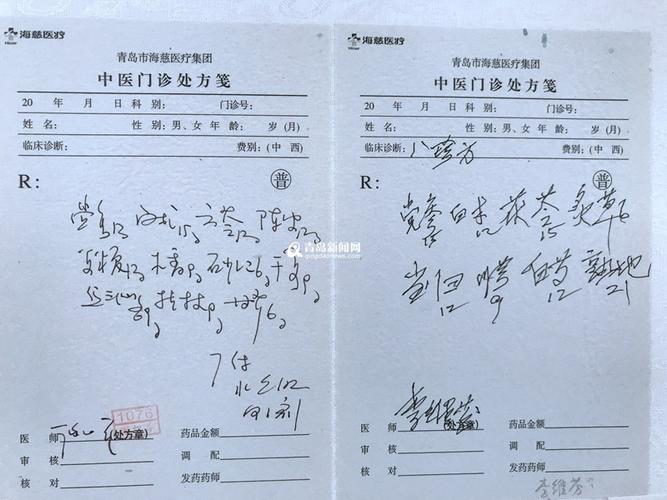 海慈医疗
青岛市海慈医疗集团
中医门诊处方笺
20 年 月 日 科别: 门诊号:
姓名: 性别: 男、女 年龄: 岁(月)
临床诊断: 费别:(中 西)
R: 普
陈皮
桂枝9g
付
1076
医师 (处方章) 药品金额
审核 调配
核对 发药药师
青岛新闻网
qingdaonews.com
海慈医疗
青岛市海慈医疗集团
中医门诊处方笺
20 年 月 日 科别: 门诊号:
姓名: 性别: 男、女 年龄: 岁(月)
临床诊断: 八珍汤 费别:(中 西)
R: 普
党参15 白术12 茯苓15 炙草6
当归12 川芎9 白芍12 熟地21
李维芬
医师 (处方章) 药品金额
审核 调配
核对 发药药师
李维芬